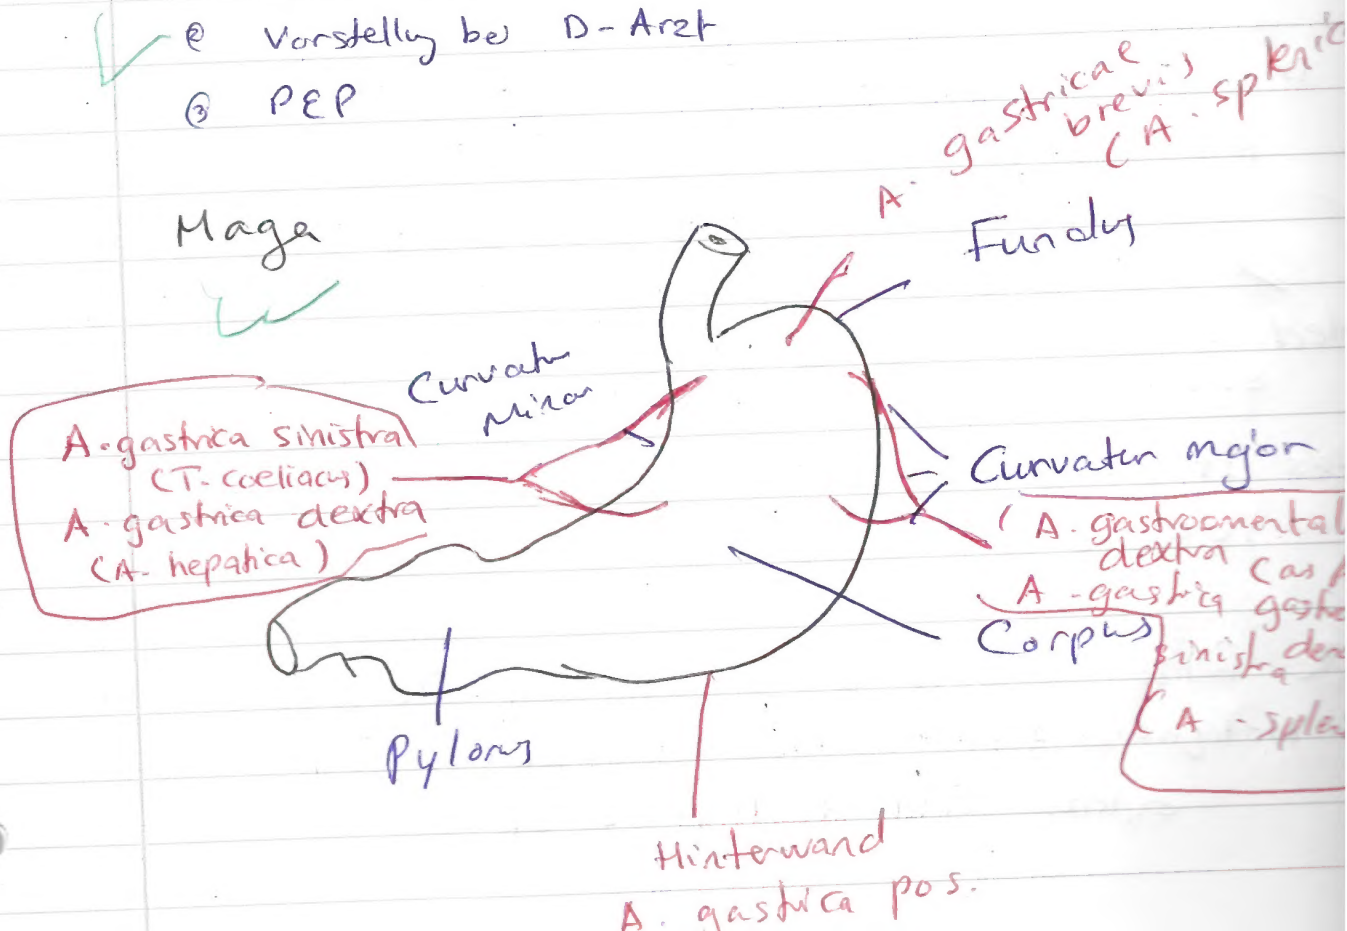 ② Vorstellung bei D-Arzt
③ PEP
A. gastricae
brevis
(A. splenic
Magen
Fundus
Curvatur
Minor
A. gastrica sinistra
(T. coeliacus)
A. gastrica dextra
(A. hepatica)
Curvatur major
(A. gastroomental
dextra
A. gastrica
sinistra
Corpus
(A. splen
Pylorus
Hinterwand
A. gastrica pos.